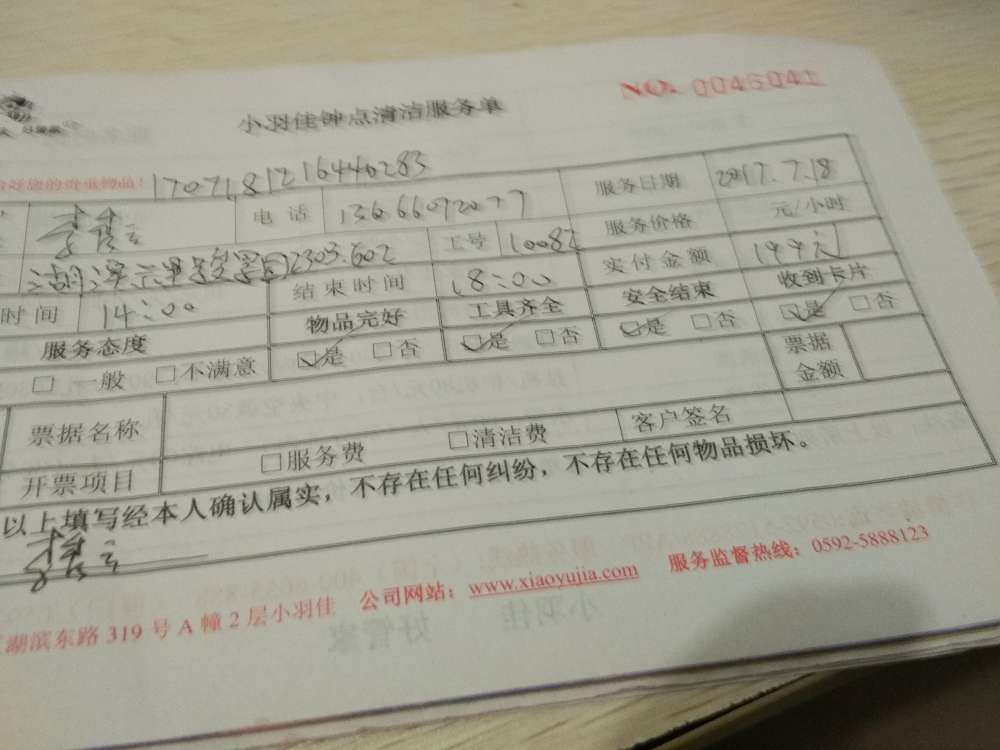 小羽佳钟点清洁服务单 NO. 0046041
1707181216440283
电话 13666072077 服务日期 2017.7.18
2303.602 工号 10082 服务价格 元/小时
时间 14:00 结束时间 18:00 实付金额 144元
服务态度 物品完好 工具齐全 安全结束 收到卡片
□ 一般 □不满意 ☑是 □否 ☑是 □否 ☑是 □否 ☑是 □否
票据名称 票据金额
开票项目 □服务费 □清洁费 客户签名
以上填写经本人确认属实，不存在任何纠纷，不存在任何物品损坏。
湖滨东路 319 号 A 幢 2 层小羽佳 公司网站：www.xiaoyujia.com 服务监督热线：0592-5888123